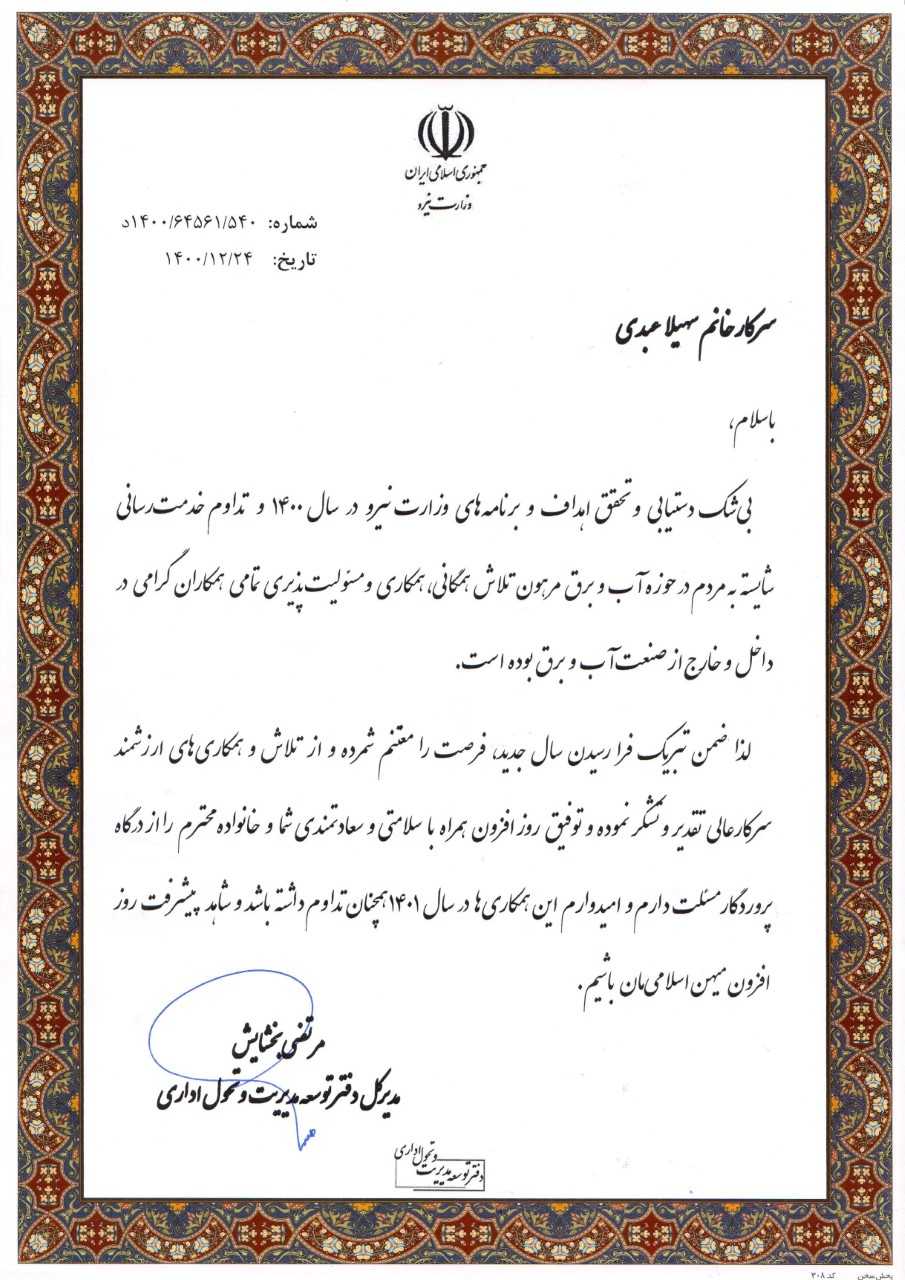 جمهوری اسلامی ایران
وزارت نیرو
شماره: ۱۴۰۰/۶۴۵۶۱/۵۴۰د
تاریخ: ۱۴۰۰/۱۲/۲۴
سرکار خانم سهیلا عبدی
باسلام،
بی‌شک دستیابی و تحقق اهداف و برنامه‌های وزارت نیرو در سال ۱۴۰۰ و تداوم خدمت‌رسانی
شایسته به مردم در حوزه آب و برق مرهون تلاش همگانی، همکاری و مسئولیت‌پذیری تمامی همکاران گرامی در
داخل و خارج از صنعت آب و برق بوده است.
لذا ضمن تبریک فرا رسیدن سال جدید، فرصت را مغتنم شمرده و از تلاش و همکاری‌های ارزشمند
سرکارعالی تقدیر و تشکر نموده و توفیق روز افزون همراه با سلامتی و سعادتمندی شما و خانواده محترم را از درگاه
پروردگار مسئلت دارم و امیدوارم این همکاری‌ها در سال ۱۴۰۱ همچنان تداوم داشته باشد و شاهد پیشرفت روز
افزون میهن اسلامی‌مان باشیم.
مرتضی بخشایش
مدیرکل دفتر توسعه مدیریت و تحول اداری
دفتر توسعه مدیریت
و تحول اداری
پخش سخن کد ۳۰۸